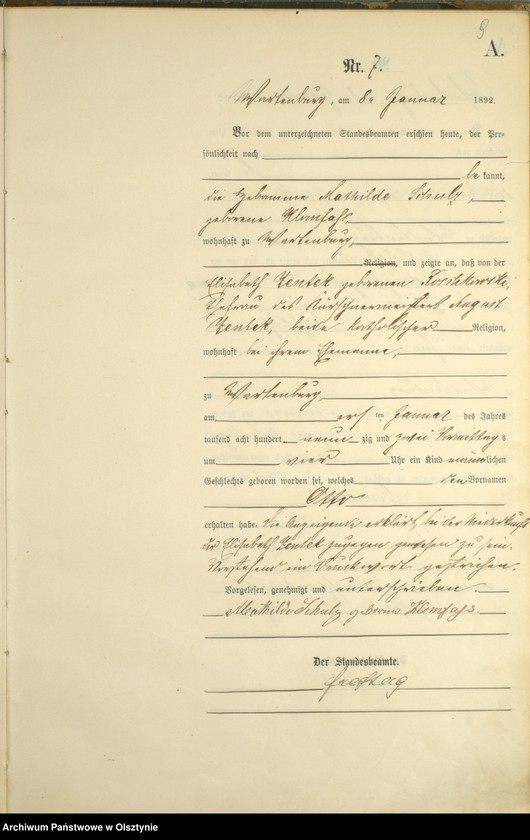 9
A.
Nr. 7.
Wartenburg, am 8. Januar 1892.
Vor dem unterzeichneten Standesbeamten erschien heute, der Per-
sönlichkeit nach
be kannt,
die Hebamme Mathilde Schulz,
geborene Klomfass,
wohnhaft zu Wartenburg,
Religion, und zeigte an, daß von der
Elisabeth Zentek geborenen
Ehefrau des Kürschnermeisters August
Zentek, beide katholischer Religion,
wohnhaft bei ihrem Ehemanne,
zu Wartenburg,
am ten Januar des Jahres
tausend acht hundert neun zig und zwei Vormittags
um vier Uhr ein Kind männlichen
Geschlechts geboren worden sei, welches den Vornamen
Otto
erhalten habe. Die Anzeigende erklärt, bei der Niederkunft
der Elisabeth Zentek zugegen gewesen zu sein.
Vorstehend ein Druckwort gestrichen.
Vorgelesen, genehmigt und unterschrieben.
Mathilde Schulz geborene Klomfass
Der Standesbeamte.
Archiwum Państwowe w Olsztynie